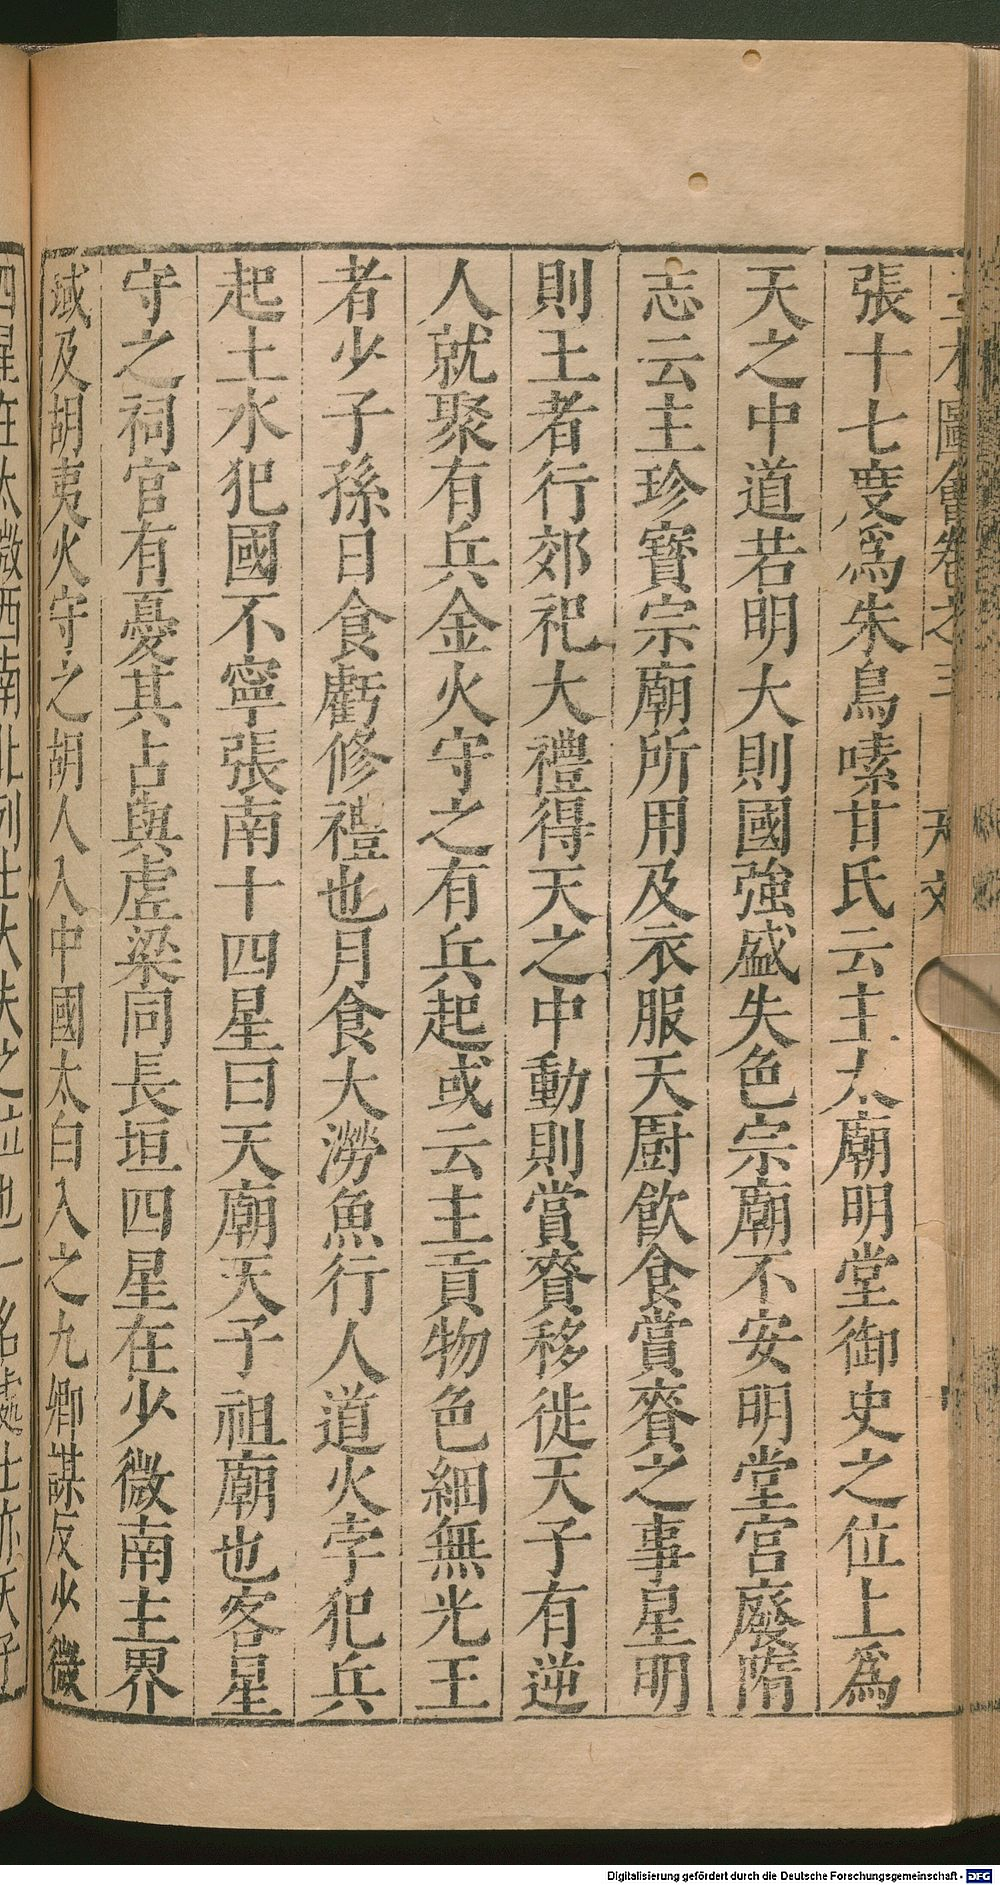 圖會卷之三 天文
張十七度爲朱鳥嗉甘氏云主太廟明堂御史之位上爲
天之中道若明大則國強盛失色宗廟不安明堂宮廢隋
志云主珍寶宗廟所用及衣服天廚飲食賞賚之事星明
則王者行郊祀大禮得天之中動則賞賚移徙天子有逆
人就聚有兵金火守之有兵起或云主貢物色細無光王
者少子孫日食虧修禮也月食大澇魚行人道火孛犯兵
起土水犯國不寧張南十四星曰天廟天子祖廟也客星
守之祠官有憂其占與虛梁同長垣四星在少微南主界
域及胡夷火守之胡人入中國太白入之九卿謀反少微
四星在太微西南北列士大夫之位也一名處士亦天子
Digitalisierung gefördert durch die Deutsche Forschungsgemeinschaft - DFG